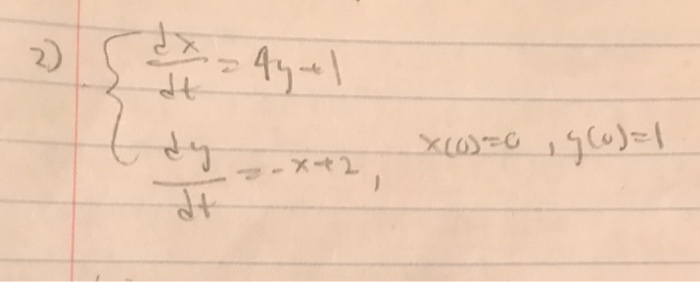 2) { dx/dt = 4y+1
dy/dt = -x+2, x(0)=0, y(0)=1